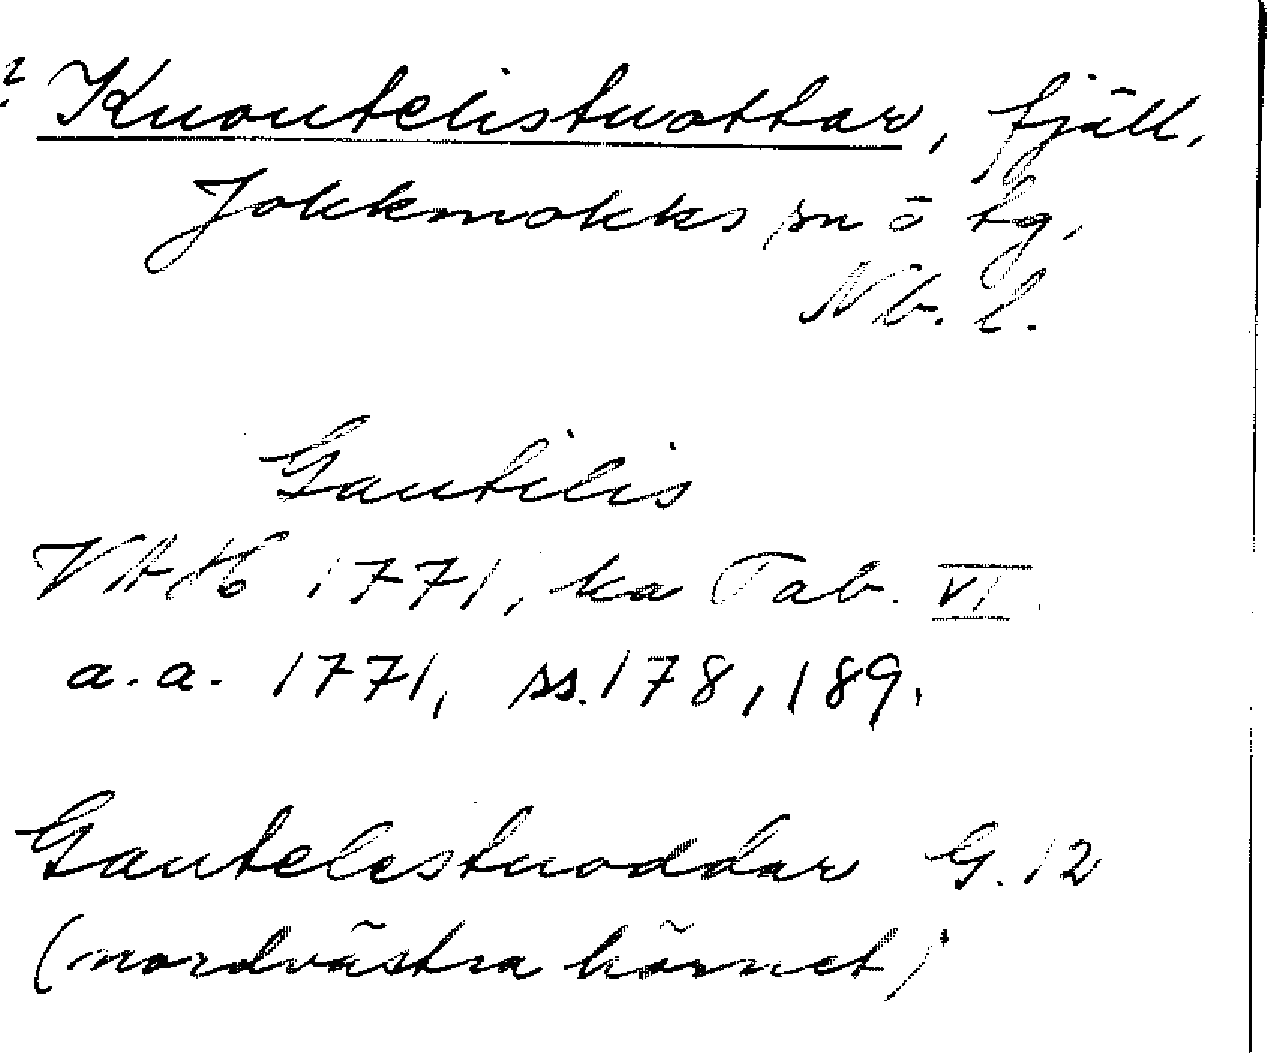 ? Kuoutelistuottar, fjäll,
Jokkmokks sn o tg,
Nb. l.
Gautilis
VAH 1771, ka Tab. VI.
a.a. 1771, ss. 178, 189.
Gautelestuoddar G. 12
(nordvästra hörnet)